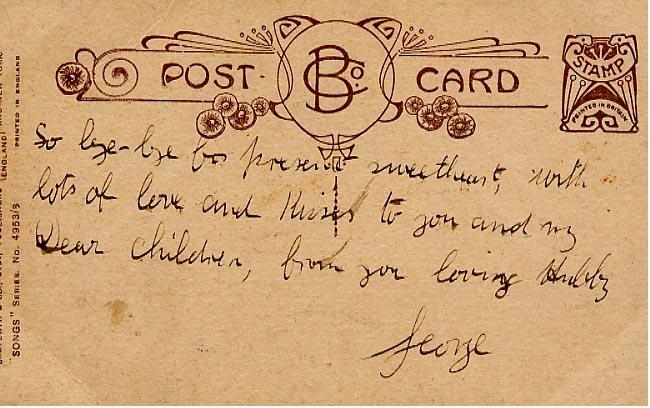 POST CARD
B Co.
STAMP
PRINTED IN BRITAIN
So bye-bye for present sweetheart, with
lots of love and Kisses to you and my
Dear children, from you loving Hubby
George
"SONGS" SERIES. No. 4953/3
PRINTED IN ENGLAND